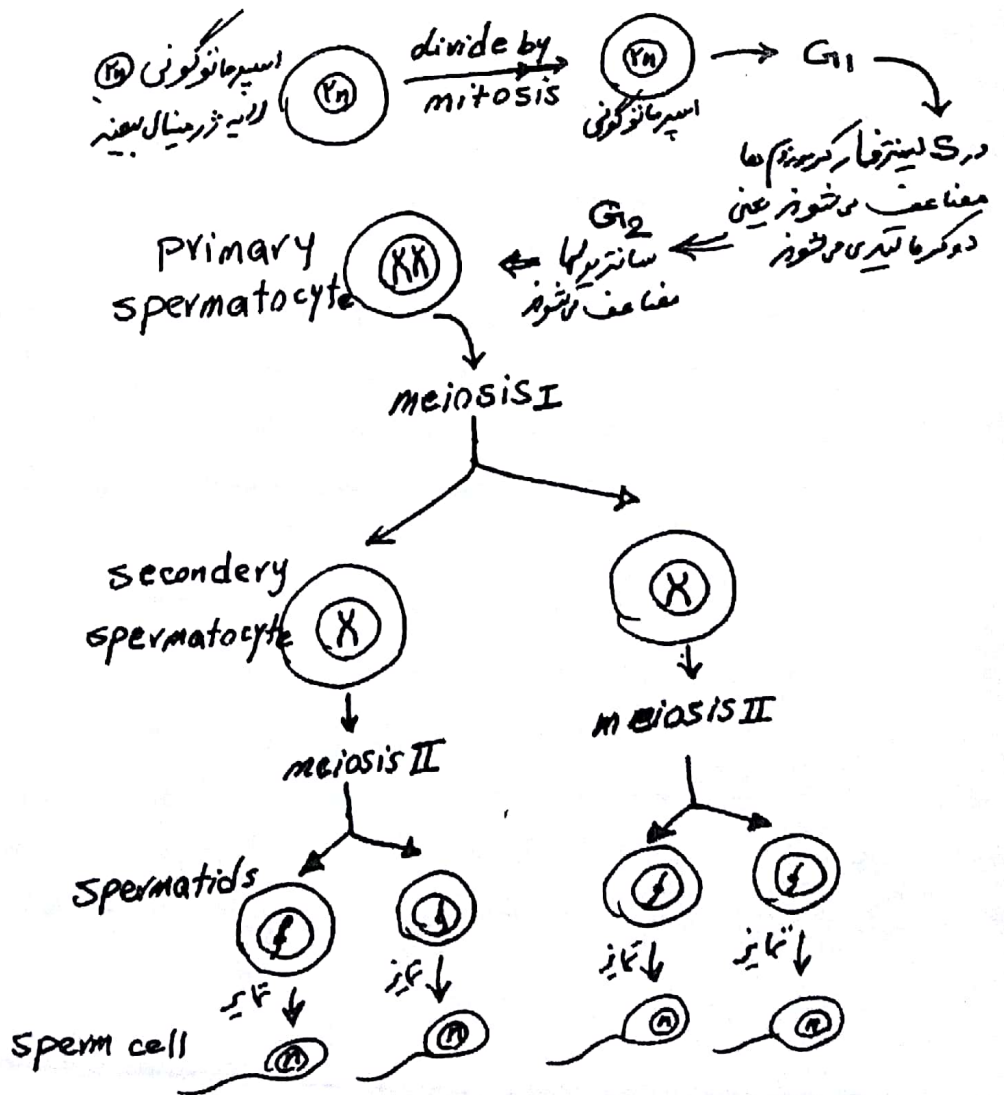 اسپرماتوگونی ۲n
لایه ژرمینال بیضه
۲n
divide by
mitosis
۲n
اسپرماتوگونی
G1
در S اینترفاز کروموزوم ها
مضاعف می‌شوند یعنی
دو کروماتیدی می‌شوند
G2
سانتریولها
مضاعف می‌شوند
primary
spermatocyte
meiosis I
secondery
spermatocyte
meiosis II
meiosis II
spermatids
تمایز
تمایز
تمایز
تمایز
sperm cell
n
n
n
n